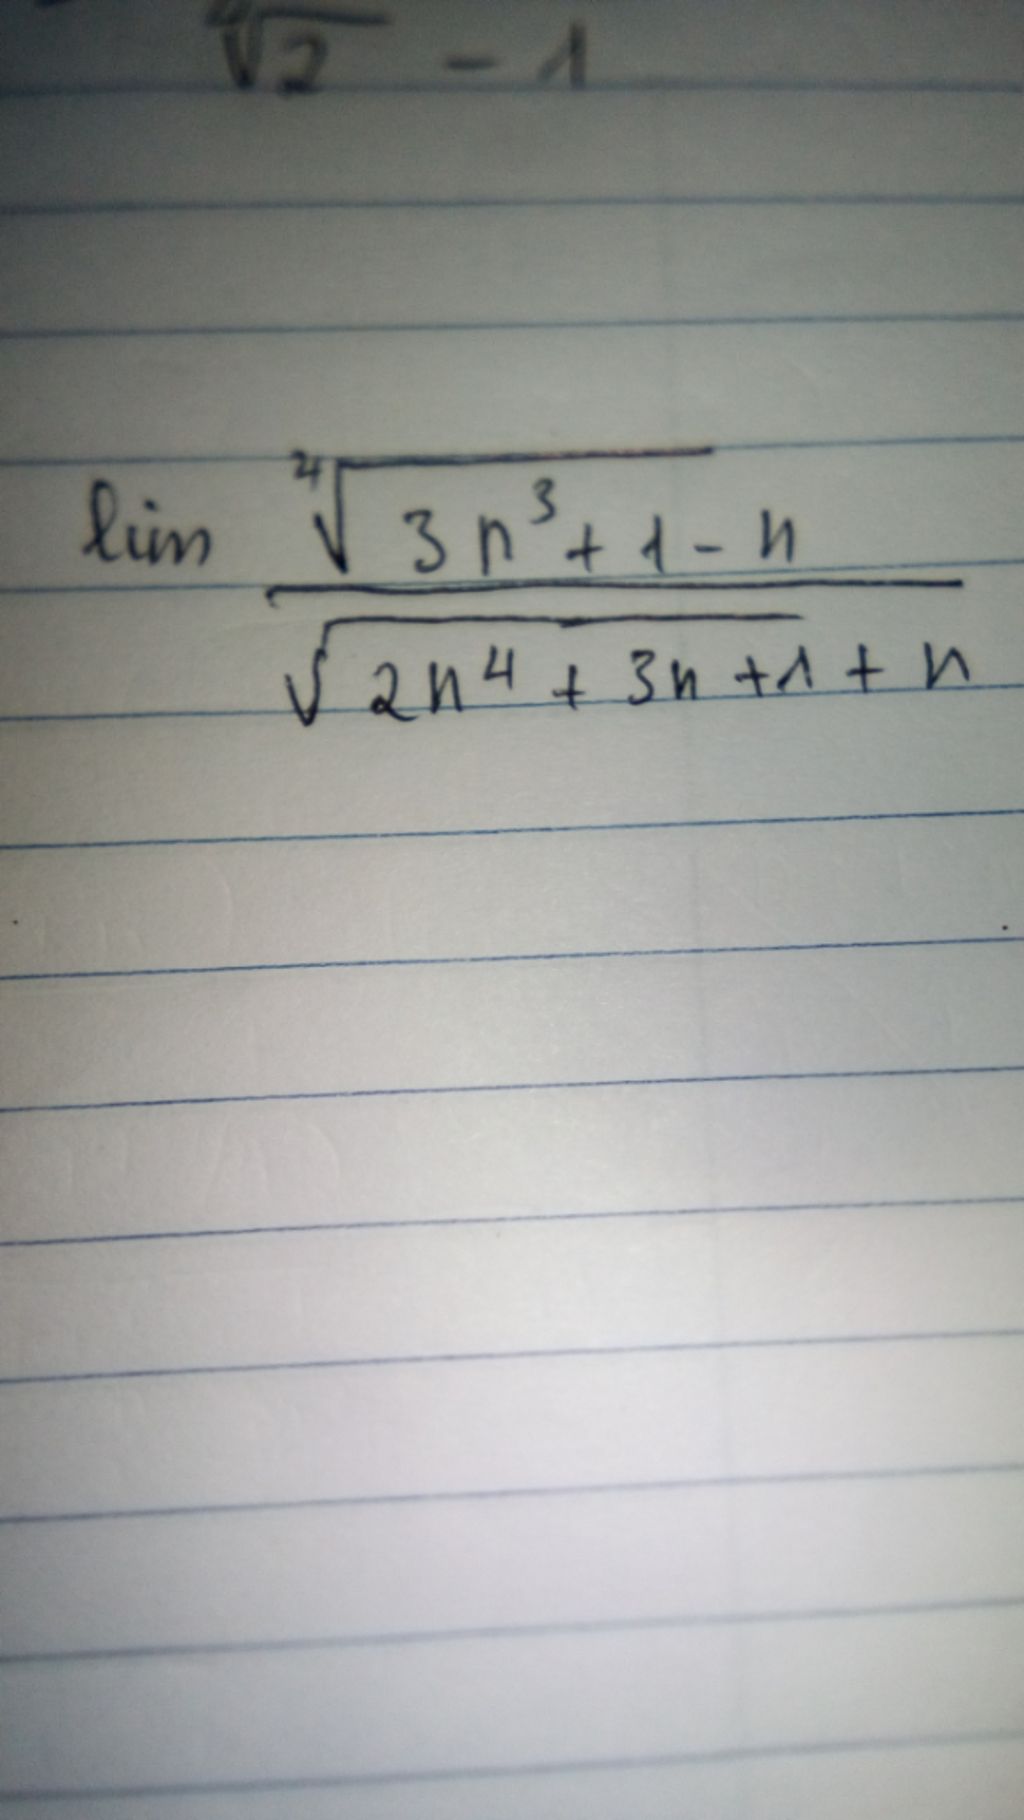 ∜2 - 1
lim (∜(3n³ + 1) - n) / (√(2n⁴ + 3n + 1) + n)